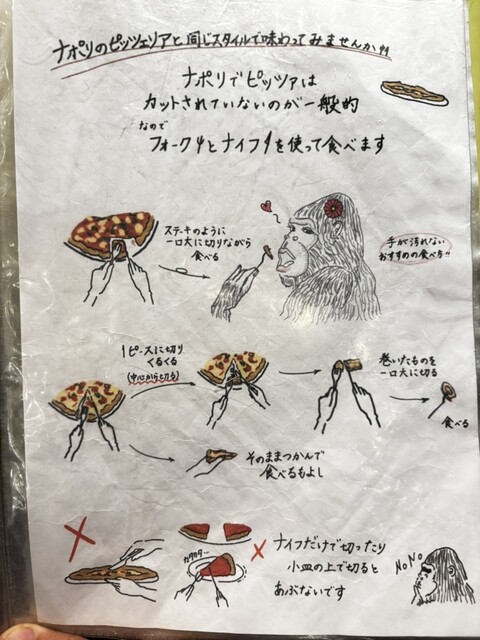 ナポリのピッツェリアと同じスタイルで味わってみませんか!!
ナポリでピッツァは
カットされていないのが一般的
なので
フォークとナイフを使って食べます
ステーキのように
一口大に切りながら
食べる
手が汚れない
おすすめの食べ方!!
1ピースに切り
くるくる
(中心から切る)
巻いたものを
一口大に切る
食べる
そのままつかんで
食べるもよし
カタカタ…
ナイフだけで切ったり
小皿の上で切ると
あぶないです
NoNo